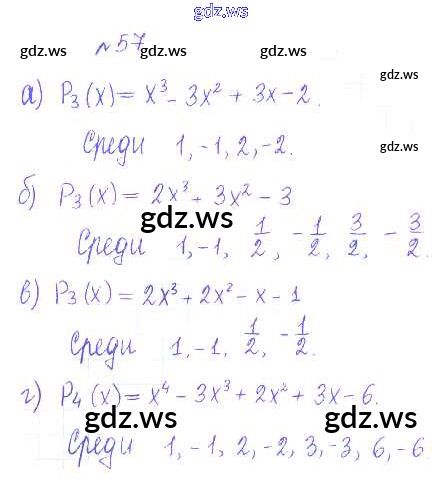 gdz.ws
№57
gdz.ws gdz.ws gdz.ws
а) P₃(x) = x³ - 3x² + 3x - 2.
gdz.ws
Среди 1, -1, 2, -2.
gdz.ws
б) P₃(x) = 2x³ + 3x² - 3
gdz.ws
Среди 1, -1, 1/2, -1/2, 3/2, -3/2.
gdz.ws
в) P₃(x) = 2x³ + 2x² - x - 1
Среди 1, -1, 1/2, -1/2.
г) P₄(x) = x⁴ - 3x³ + 2x² + 3x - 6.
gdz.ws gdz.ws
Среди 1, -1, 2, -2, 3, -3, 6, -6